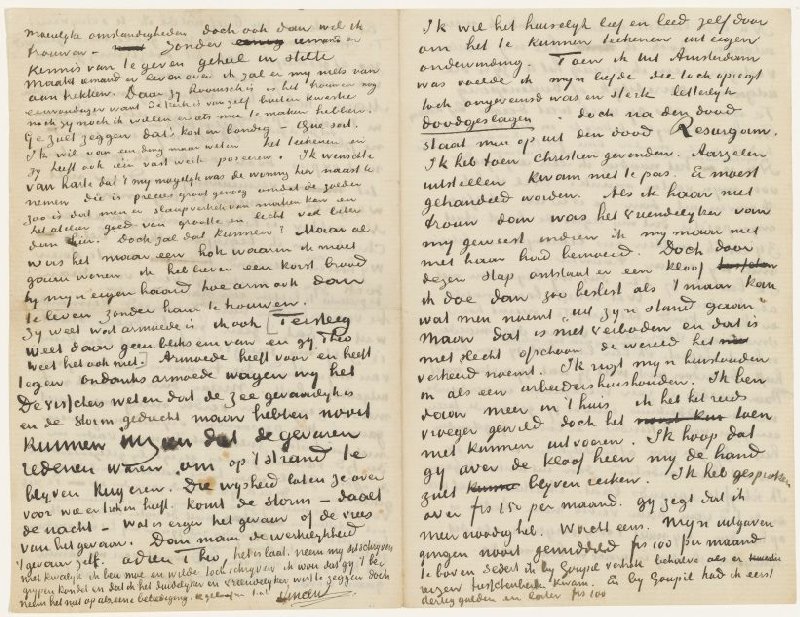 moeielyke omstandigheden doch ook dan wil ik
trouwen – zonder iemand er
kennis van te geven geheel in stilte
maakt iemand er leven over ik zal er my niets van
aan trekken. Daar zy Roomsch is is het trouwen nog
eenvoudiger want de kerk is van zelf buiten kwestie
noch zy noch ik willen er iets mee te maken hebben.
Ge zult zeggen dat is kort en bondig – Que soit.
Ik wil van een ding maar weten het teekenen en
zy heeft ook een vast werk poseeren. Ik wenschte
van harte dat 't my mogelyk was de woning hier naast te
nemen die is precies groot genoeg omdat de zolder
zoo is dat men er slaapvertrek van maken kan en
het atelier goed van grootte en licht veel beter
dan hier. Doch zal dat kunnen? Maar al
was het maar een hok waarin ik moet
gaan wonen ik heb liever een korst brood
by myn eigen haard hoe arm ook dan
te leven zonder haar te trouwen.
Zy weet wat armoede is ik ook Tersteeg
weet daar geen bliksem van en gy Theo
weet het ook niet. Armoede heeft voor en heeft
tegen ondanks armoede wagen wy het
De visschers weten dat de zee gevaarlyk is
en de storm geducht maar hebben nooit
kunnen inzien dat de gevaren
redenen waren om op 't strand te
blyven kuyeren. Die wysheid laten ze over
voor wie er lekker in heeft. Komt de storm – daalt
de nacht – Wat is erger het gevaar of de vrees
van het gevaar. Dan maar de werkelykheid
't gevaar zelf. adieu Theo, het is laat. neem my dit schryven
niet kwalyk ik ben moe en wilde toch schryven ik wou dat gy 't be-
grypen kondet en dat ik het duidelyker en vriendelyker wist te zeggen doch
neem het niet op als eene beleediging. t.à t.
Vincent
Ik wil het huiselyk lief en leed zelf door
om het te kunnen teekenen uit eigen
ondervinding. Toen ik uit Amsterdam
was voelde ik myn liefde die toch opregt
toch ongeveinsd was en sterk letterlyk
doodgeslagen – doch na den dood
staat men op uit den dood Resurgam.
Ik heb toen Christien gevonden. Aarzelen
uitstellen kwam niet te pas. Er moest
gehandeld worden. Als ik haar niet
trouw dan was het vriendelyker van
my geweest indien ik my maar niet
met haar had bemoeid. Doch door
dezen stap ontstaat er een kloof
ik doe dan zoo beslist als 't maar kan
wat men noemt „uit zyn stand gaan”
maar dat is niet verboden en dat is
niet slecht ofschoon de wereld het
verkeerd noemt. Ik rigt myn huishouden
in als een arbeidershuishouden. Ik ben
daar meer in 't huis ik heb het reeds
vroeger gewild doch het toen
niet kunnen uitvoeren. Ik hoop dat
gy over de kloof heen my de hand
zult blyven reiken. Ik heb gesproken
over frs 150 per maand. gy zegt dat ik
meer noodig heb. Wacht eens. Myn uitgaven
gingen nooit gemiddeld frs 100 per maand
te boven sedert ik by Goupil vertrok behalve als er
reizen tusschenbeide kwam. En by Goupil had ik eerst
dertig gulden en later frs 100